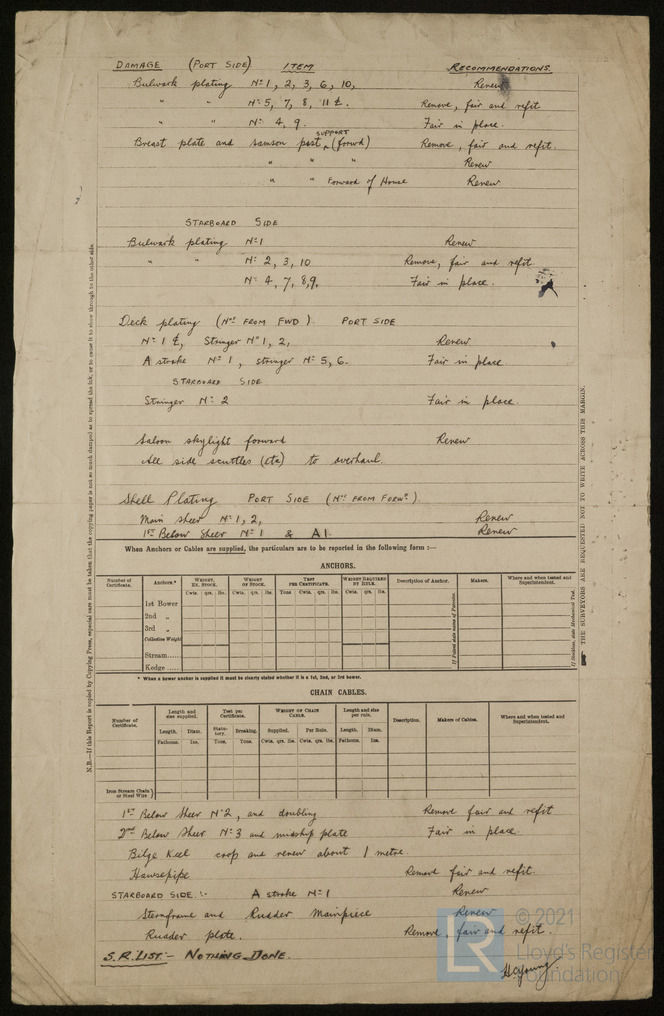 DAMAGE (PORT SIDE) ITEM RECOMMENDATIONS.
Bulwark plating Nº 1, 2, 3, 6, 10, Renew
" " Nº 5, 7, 8, 11 ℄. Remove, fair and refit
" " Nº 4, 9. Fair in place.
Breast plate and samson post SUPPORT (forwd) Remove, fair and refit.
" " " Renew
" " Forward of House Renew
STARBOARD SIDE
Bulwark plating Nº 1 Renew
" " Nº 2, 3, 10 Remove, fair and refit
Nº 4, 7, 8, 9, Fair in place.
Deck plating (Nºs FROM FWD) PORT SIDE
Nº 1 ℄, Stringer Nº 1, 2, Renew
A strake Nº 1, stringer Nº 5, 6. Fair in place
STARBOARD SIDE
Stringer Nº 2 Fair in place
Saloon skylight forward Renew
All side scuttles (etc) to overhaul.
Shell Plating PORT SIDE (Nºs FROM FORWd).
Main sheer Nº 1, 2, Renew
1st Below Sheer Nº 1 & A1 Renew
When Anchors or Cables are supplied, the particulars are to be reported in the following form :—
ANCHORS.
Number of Certificate. Anchors.* WEIGHT, EX. STOCK. WEIGHT OF STOCK. TEST PER CERTIFICATE. WEIGHT REQUIRED BY RULE. Description of Anchor. Makers. Where and when tested and Superintendent.
Cwts. qrs. lbs. Cwts. qrs. lbs. Tons Cwts. qrs. lbs. Cwts. qrs. lbs.
1st Bower
2nd "
3rd "
Collective Weight
Stream......
Kedge ......
* When a bower anchor is supplied it must be clearly stated whether it is a 1st, 2nd, or 3rd bower.
CHAIN CABLES.
Number of Certificate. Length and size supplied. Test per Certificate. WEIGHT OF CHAIN CABLE. Length and size per rule. Description. Makers of Cables. Where and when tested and Superintendent.
Length. Diam. Statutory. Breaking. Supplied. Per Rule. Length. Diam.
Fathoms. Ins. Tons. Tons. Cwts. qrs. lbs. Cwts. qrs. lbs. Fathoms. Ins.
Iron Stream Chain or Steel Wire }
1st Below Sheer Nº 2, and doubling Remove fair and refit
2nd Below Sheer Nº 3 and midship plate Fair in place.
Bilge Keel crop and renew about 1 metre.
Hawsepipe Remove fair and refit.
STARBOARD SIDE :- A strake Nº 1 Renew
Sternframe and Rudder Mainpiece Renew
Rudder plate. Remove, fair and refit.
S.R. LIST:- NOTHING DONE.
HCYoung
N.B.—If this Report is copied by Copying Press, especial care must be taken that the copying paper is not so much damped as to spread the ink, or to cause it to show through to the other side.
THE SURVEYORS ARE REQUESTED NOT TO WRITE ACROSS THIS MARGIN.
If Patent state name of Patentee.
If Stockless, state Mechanical Test.
LR © 2021
Lloyd's Register
Foundation